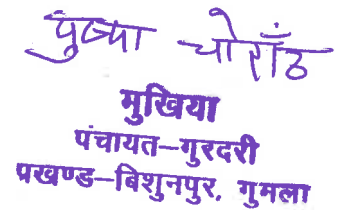 पुष्पा चोराँठ
मुखिया
पंचायत–गुरदरी
प्रखण्ड–बिशुनपुर, गुमला